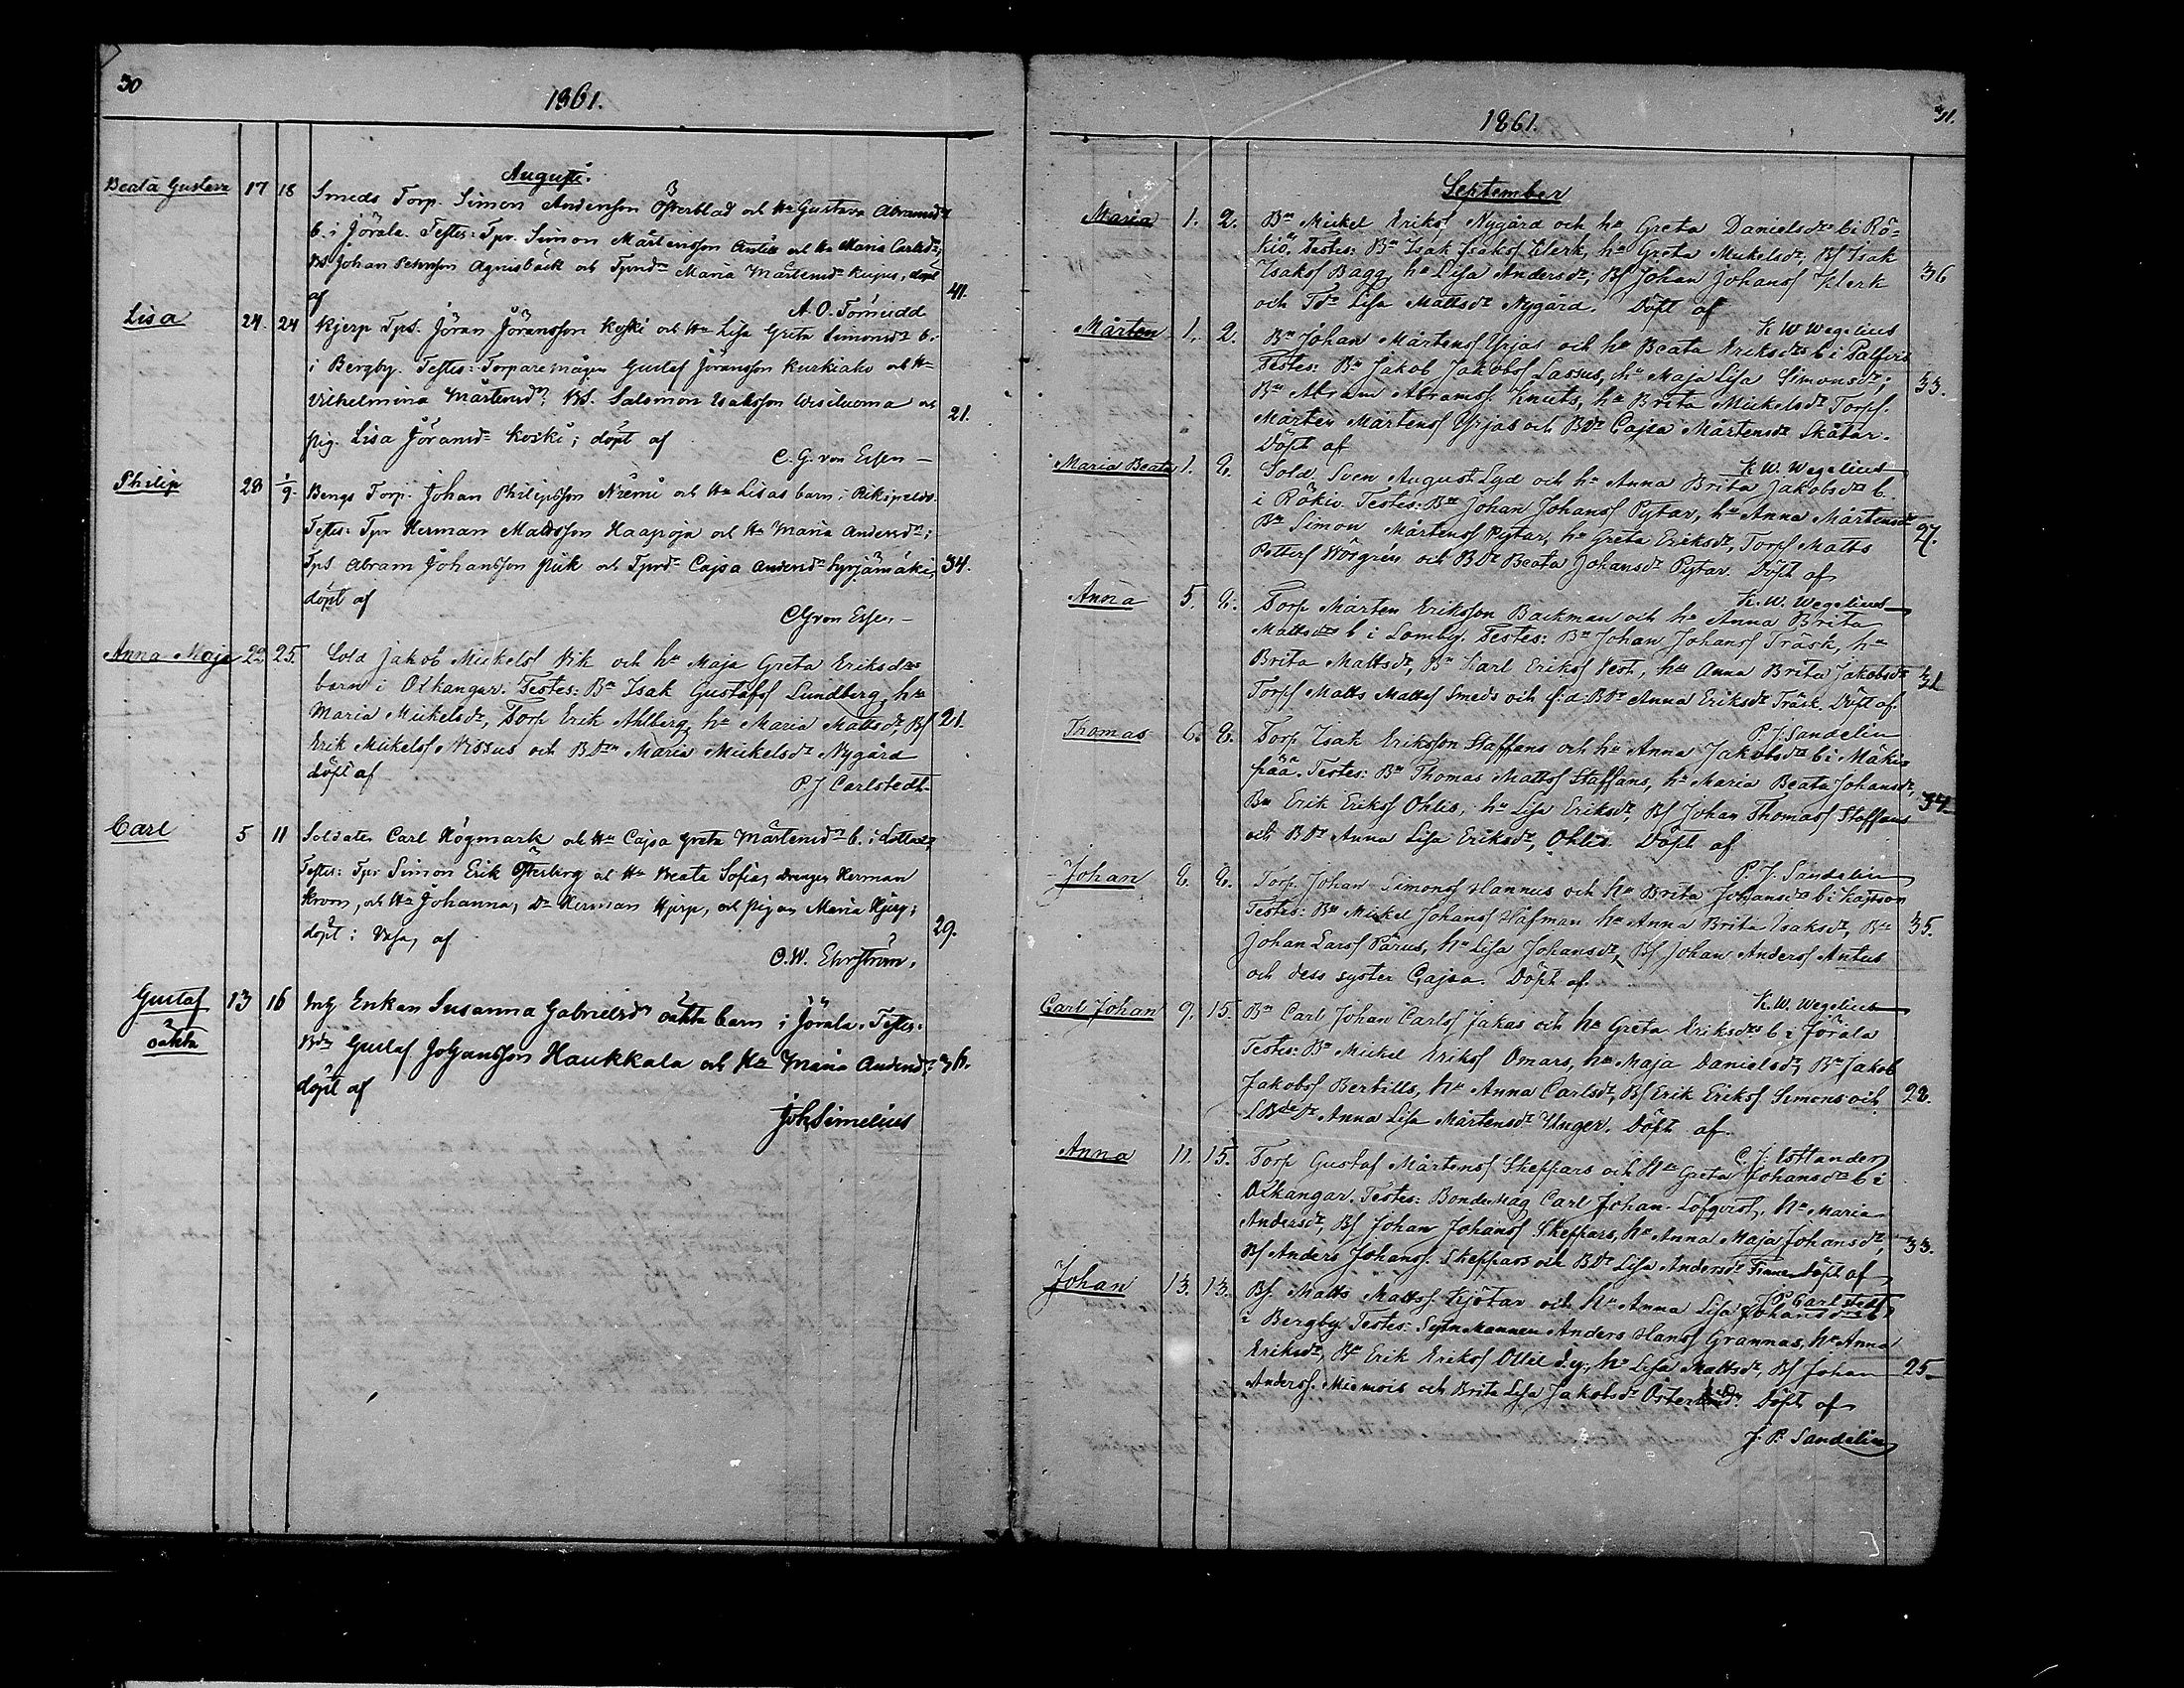 30
1861.
Augusti.
Beata Gustava 17 18 Smeds Torp. Simon Andersson Österblad och Hu Gustava Abramsdr
b. i Jörala. Testes: Tpr. Simon Mårtensson Antila och Hu Maria Carlsdr;
BS. Johan Petersson Agnisbäck och Tprdr Maria Mårtensdr Kupus, döpt
af 41.
A. O. Törnudd
Lisa 24. 24 Kjerp Tps. Jöran Jöransson Koski och Hu Lisa Greta Simonsdr b.
i Bergby. Testes: Torparemågen Gustaf Jöransson Kurkiaho och Hu
Vilhelmina Mårtensdr; BS. Salomon Isaksson Uusiluoma och 21.
pig. Lisa Jöransdr Koski; döpt af
C. G. von Essen
Philip 28 1/9. Bengs Torp. Johan Philipsson Niemi och Hu Lisas barn i
Testes: Tpr Herman Mattsson Haapoja och Hu Maria Andersdr;
Tps Abram Johansson Piik och Tprdr Cajsa Andersdr Syrjämäki, 34.
döpt af
CG von Essen
Anna Maja 22 25. Sold Jakob Mickelss Vik och hu Maja Greta Eriksdrs
barn i Oxkangar. Testes: Bn Isak Gustafss Lundberg, hu
Maria Mickelsdr, Torp Erik Ahlberg, hu Maria Mattsdr, Bs 21.
Erik Mickelss Nissus och BDrn Maria Mickelsdr Nygård
döpt af
P J Carlstedt
Carl 5 11 Soldaten Carl Högmark och Hu Cajsa Greta Mårtensdr b. i Lottax;
Testes: Tpr Simon Erik Österberg och Hu Beata Sofia, drengen Herman
Krons, och Hu Johanna, Dr Herman Hjerp, och pigan Maria Hjerp;
döpt i Vasa, af 29.
C. W. Ehrström.
Gustaf 13 16 Enkan Susanna Gabrielsdrs oäkta barn i Jörala. Testes:
oäkta
Bdn Gustaf Johansson Haukkala och Hu Maria Andersdr 36.
döpt af
Joh Simelius
1861. 31.
September
Maria 1. 2. Bn Mickel Erikss Nygård och hu Greta Danielsdrs b i Rö-
kiö. Testes: Bn Isak Isakss Klerk, hu Greta Mickelsdr, Bs Isak
Isakss Bagg, hu Lisa Andersdr; Bs Johan Johanss Klerk 36
och Tdr Lisa Mattsdr Nygård. Döpt af
K. W. Wegelius
Mårten 1. 2. Bn Johan Mårtenss Yrjas och hu Beata Eriksdrs b i Palfvis
Testes: Bn Jakob Jakobss Lassus, hu Maja Lisa Simonsdr;
Bn Abram Abramss Knuts, hu Brita Mickelsdr Torps. 33.
Mårten Mårtenss Yrjas och BDr Cajsa Mårtensdr Skåtar.
Döpt af
K. W. Wegelius
Maria Beata 1. 8. Sold. Sven August Lyd och hu Anna Brita Jakobsdrs b.
i Rökiö. Testes: Bn Johan Johanss Pytar, hu Anna Mårtensdr
Bn Simon Mårtenss Pytar, hu Greta Eriksdr, Torps Matts 27.
Petterss Wörgrén och BDr Beata Johansdr Pytar. Döpt af
K. W. Wegelius
Anna 5. 8. Torp Mårten Eriksson Backman och hu Anna Brita
Mattsdrs b i Lomby. Testes: Bn Johan Johanss Träsk, hu
Brita Mattsdr, Bn Karl Erikss Vest, hu Anna Brita Jakobsdr
Torps Matts Mattss Smeds och f.d. BDr Anna Eriksdr Träsk. Döpt af
P. J. Sandelin
Thomas 6. 8. Torp Isak Eriksson Staffans och hu Anna Jakobsdrs b i Mäki-
pää. Testes: Bn Thomas Mattss Staffans, hu Maria Beata Johansdr,
Bn Erik Erikss Ohlis, hu Lisa Eriksdr, Bs Johan Thomass Staffans 34
och BDr Anna Lisa Eriksdr, Ohlis. Döpt af
P. J. Sandelin
Johan 8. 8. Torp. Johan Simonss Hannus och hu Brita Johansdrs b i Kaitson
Testes: Bn Mickel Johanss Håfman hu Anna Brita Isaksdr, Bn 35.
Johan Larss Pärus, hu Lisa Johansdr, Bs Johan Anderss Antus
och dess syster Cajsa. Döpt af
K. W. Wegelius
Carl Johan 9. 15. Bn Carl Johan Carlss Jakas och hu Greta Eriksdrs b i Jörala
Testes: Bn Mickel Erikss Omars, hu Maja Danielsdr, Bn Jakob
Jakobss Bertills, hu Anna Carlsdr, Bs Erik Erikss Simons och 28.
Anna Lisa Mårtensdr Unger. Döpt af
C. J. Estlander
Anna 11. 15. Torp Gustaf Mårtenss Skeppars och hu Greta Johansdrs b i
Oxkangar. Testes: Bondemåg Carl Johan Löfqvist, hu Maria
Andersdr, Bs Johan Johanss Skeppars, hu Anna Maja Johansdr, 33.
Bs Anders Johanss. Skeppars och BDr Lisa Andersdr Finne döpt af
P Carlstedt
Johan 13. 13. Bs. Matts Mattss Kjötar och hu Anna Lisa Johansdrs b
i Bergby. Testes: Anders Hanss Grannas, hu Anna
Eriksdr, Bn Erik Erikss Ollil d.y., hu Lisa Mattsdr, Bs Johan 25
Anderss. Miemois och Brita Lisa Jakobsdr Döpt af
J. P. Sandelin